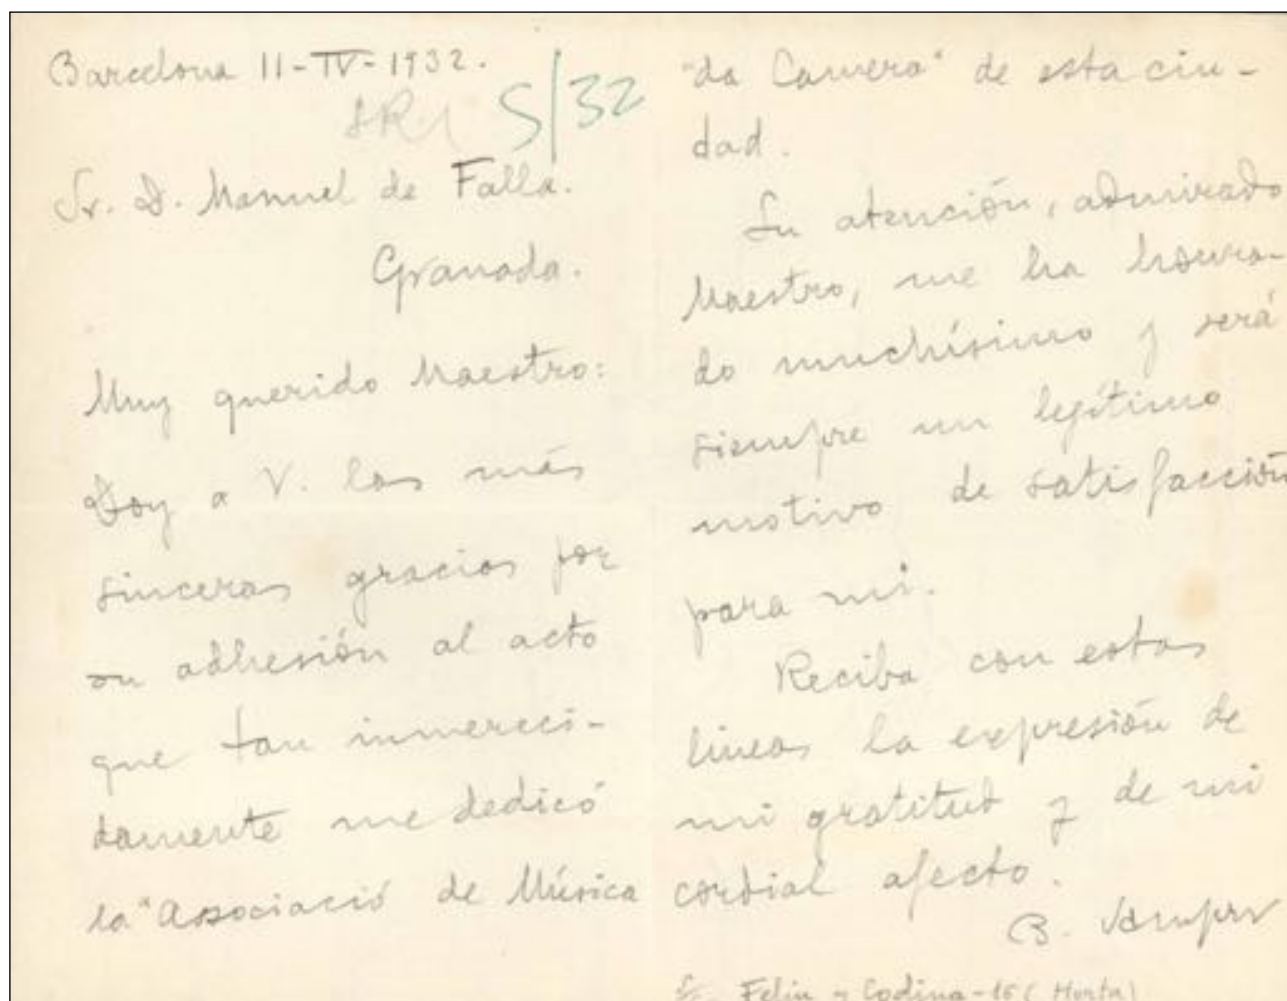 Barcelona 11-IV-1932.
S/32
Sr. D. Manuel de Falla.
Granada.
Muy querido Maestro:
Doy a V. las más
sinceras gracias por
su adhesión al acto
que tan inmereci-
damente me dedicó
la "Associació de Música
"da Camera" de esta ciu-
dad.
Su atención, admirado
Maestro, me ha honra-
do muchísimo y será
siempre un legítimo
motivo de satisfacción
para mi.
Reciba con estas
lineas la expresión de
mi gratitud y de mi
cordial afecto.
B. Samper
Feliu y Codina-16 (Horta)